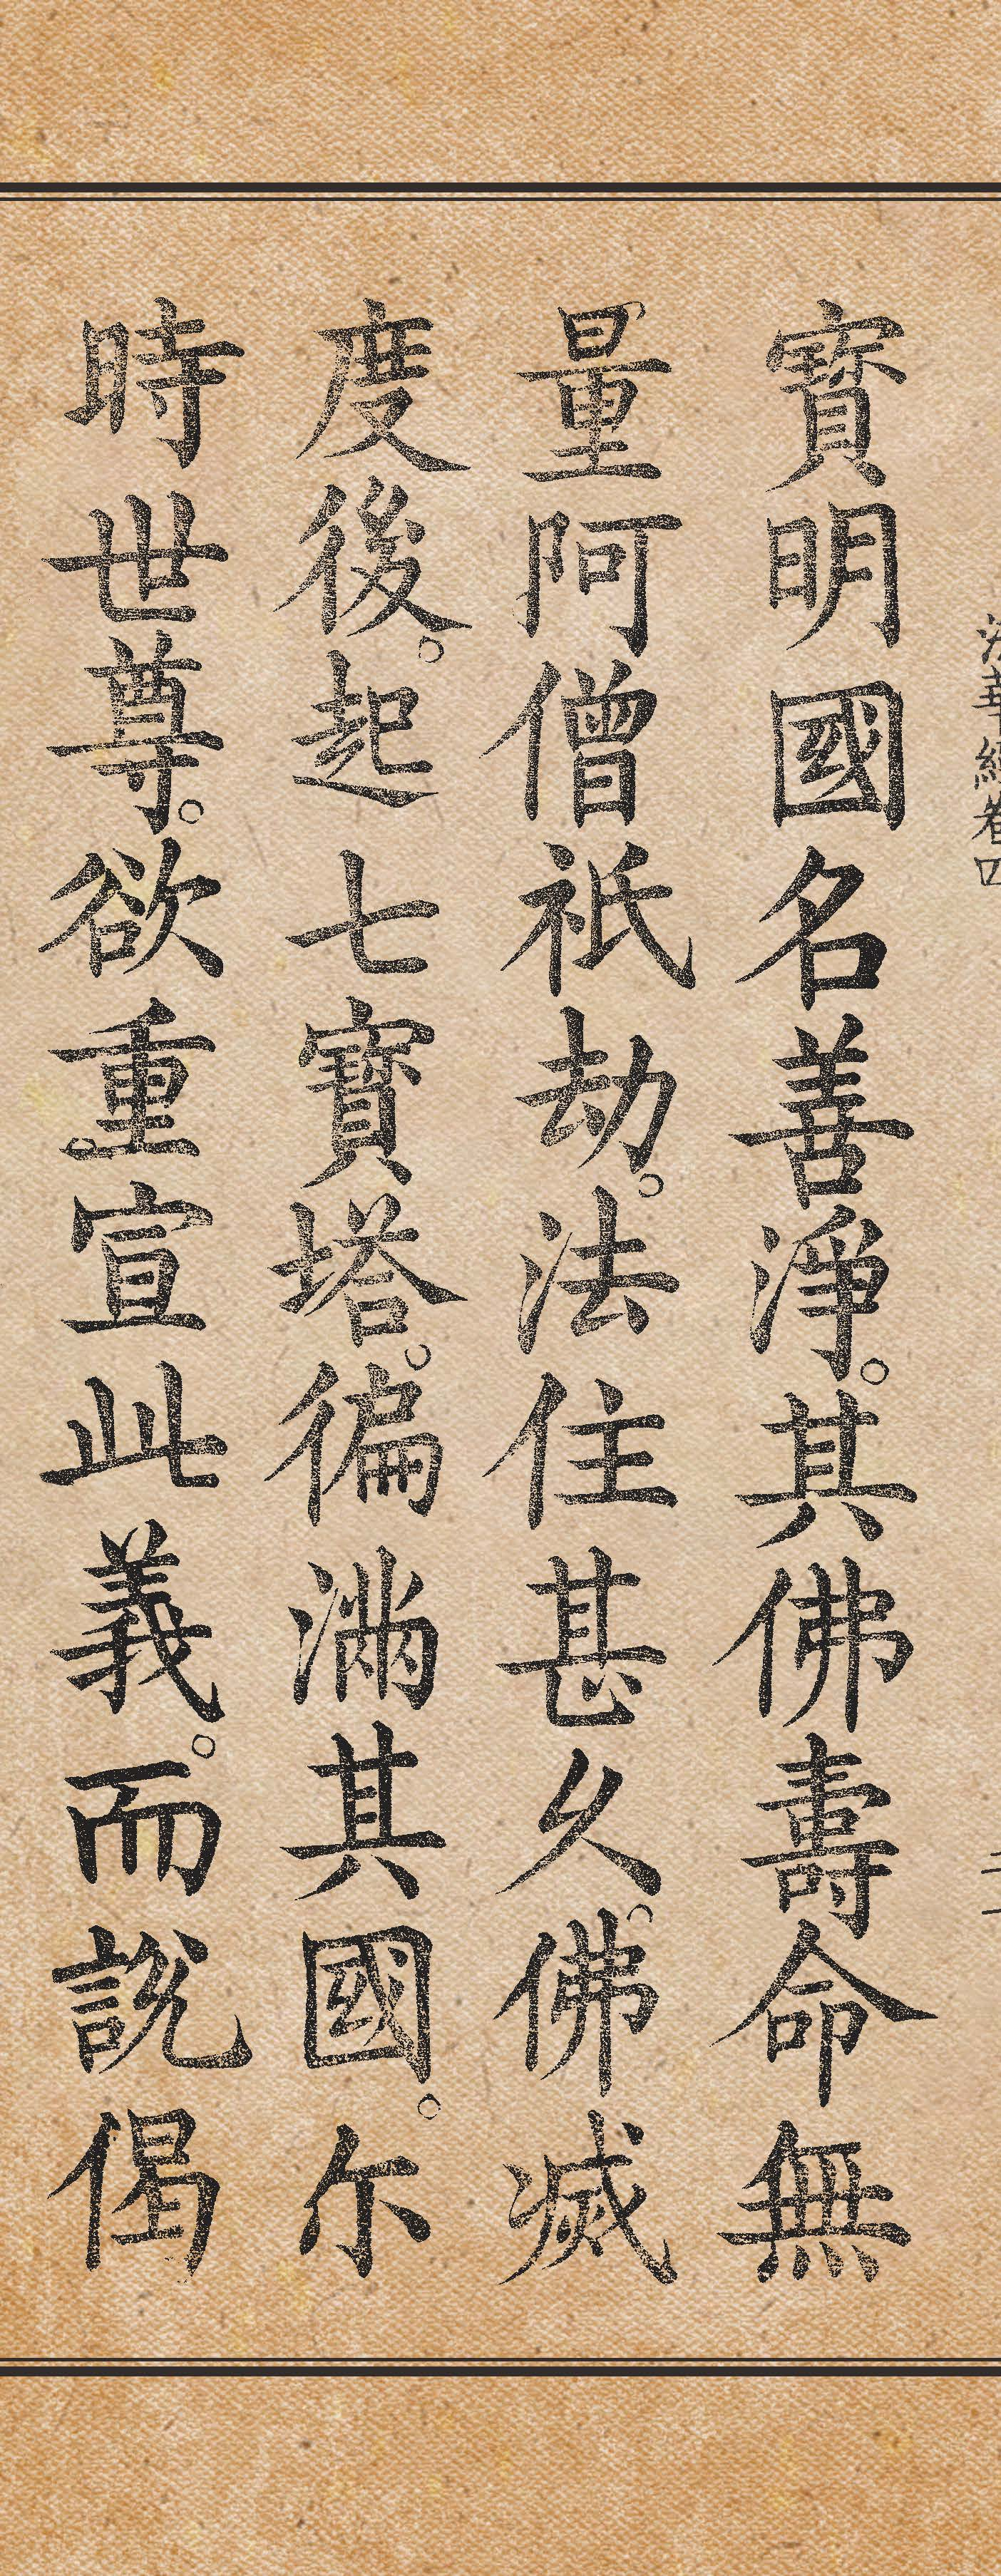 法華經卷四 二
寶明國名善淨。其佛壽命無
量阿僧祇劫。法住甚久。佛滅
度後。起七寶塔。徧滿其國。尒
時世尊。欲重宣此義。而說偈